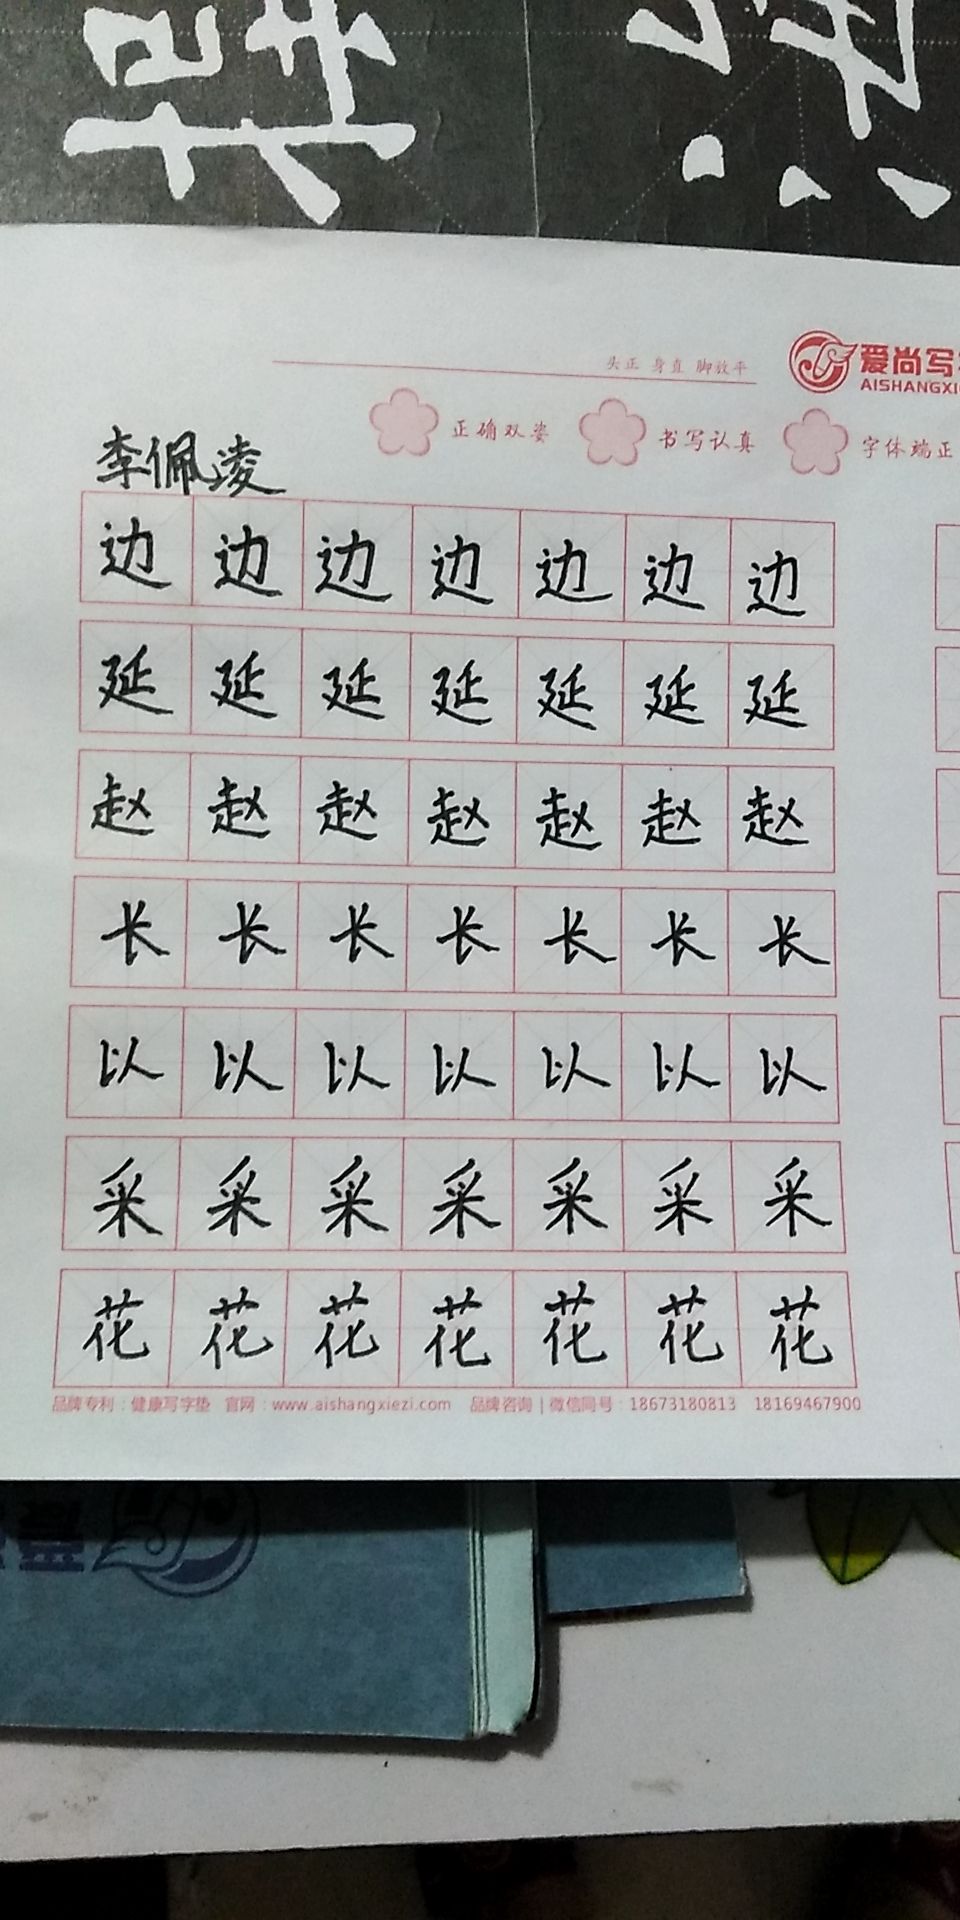 头正 身直 脚放平
爱尚写
AISHANGXI
正确双姿 书写认真 字体端正
李佩凌
边 边 边 边 边 边 边
延 延 延 延 延 延 延
赵 赵 赵 赵 赵 赵 赵
长 长 长 长 长 长 长
以 以 以 以 以 以 以
采 采 采 采 采 采 采
花 花 花 花 花 花 花
品牌专利：健康写字垫 官网：www.aishangxiezi.com 品牌咨询 | 微信同号：18673180813 18169467900